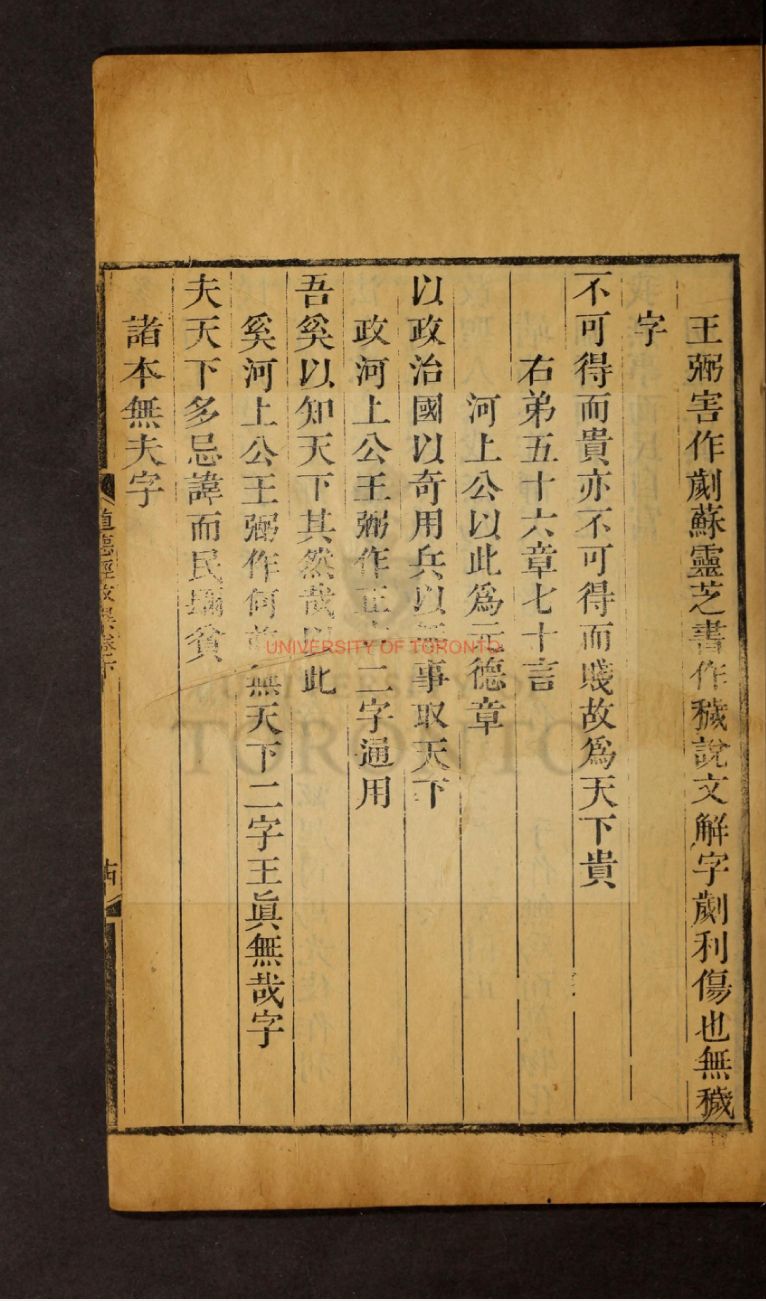 王弼害作劌蘇靈芝書作穢說文解字劌利傷也無穢
字
不可得而貴亦不可得而賤故爲天下貴
右弟五十六章七十言
河上公以此爲元德章
以政治國以奇用兵以無事取天下
政河上公王弼作正古二字通用
吾奚以知天下其然哉以此
奚河上公王弼作何竝無天下二字王眞無哉字
夫天下多忌諱而民彌貧
諸本無夫字
道德經攷異卷下
UNIVERSITY OF TORONTO
TORONTO